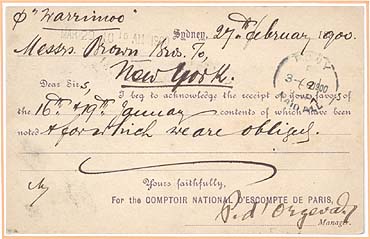 p "Warrimoo"
Sydney, 27th February 1900.
Messrs Brown Bros. Co,
New York.
Dear Sirs,
I beg to acknowledge the receipt of your favors of
the 16th & 19th January contents of which have been
noted & for which we are obliged.
Yours faithfully,
For the COMPTOIR NATIONAL D'ESCOMPTE DE PARIS,
P. d'Orgeval
Manager.